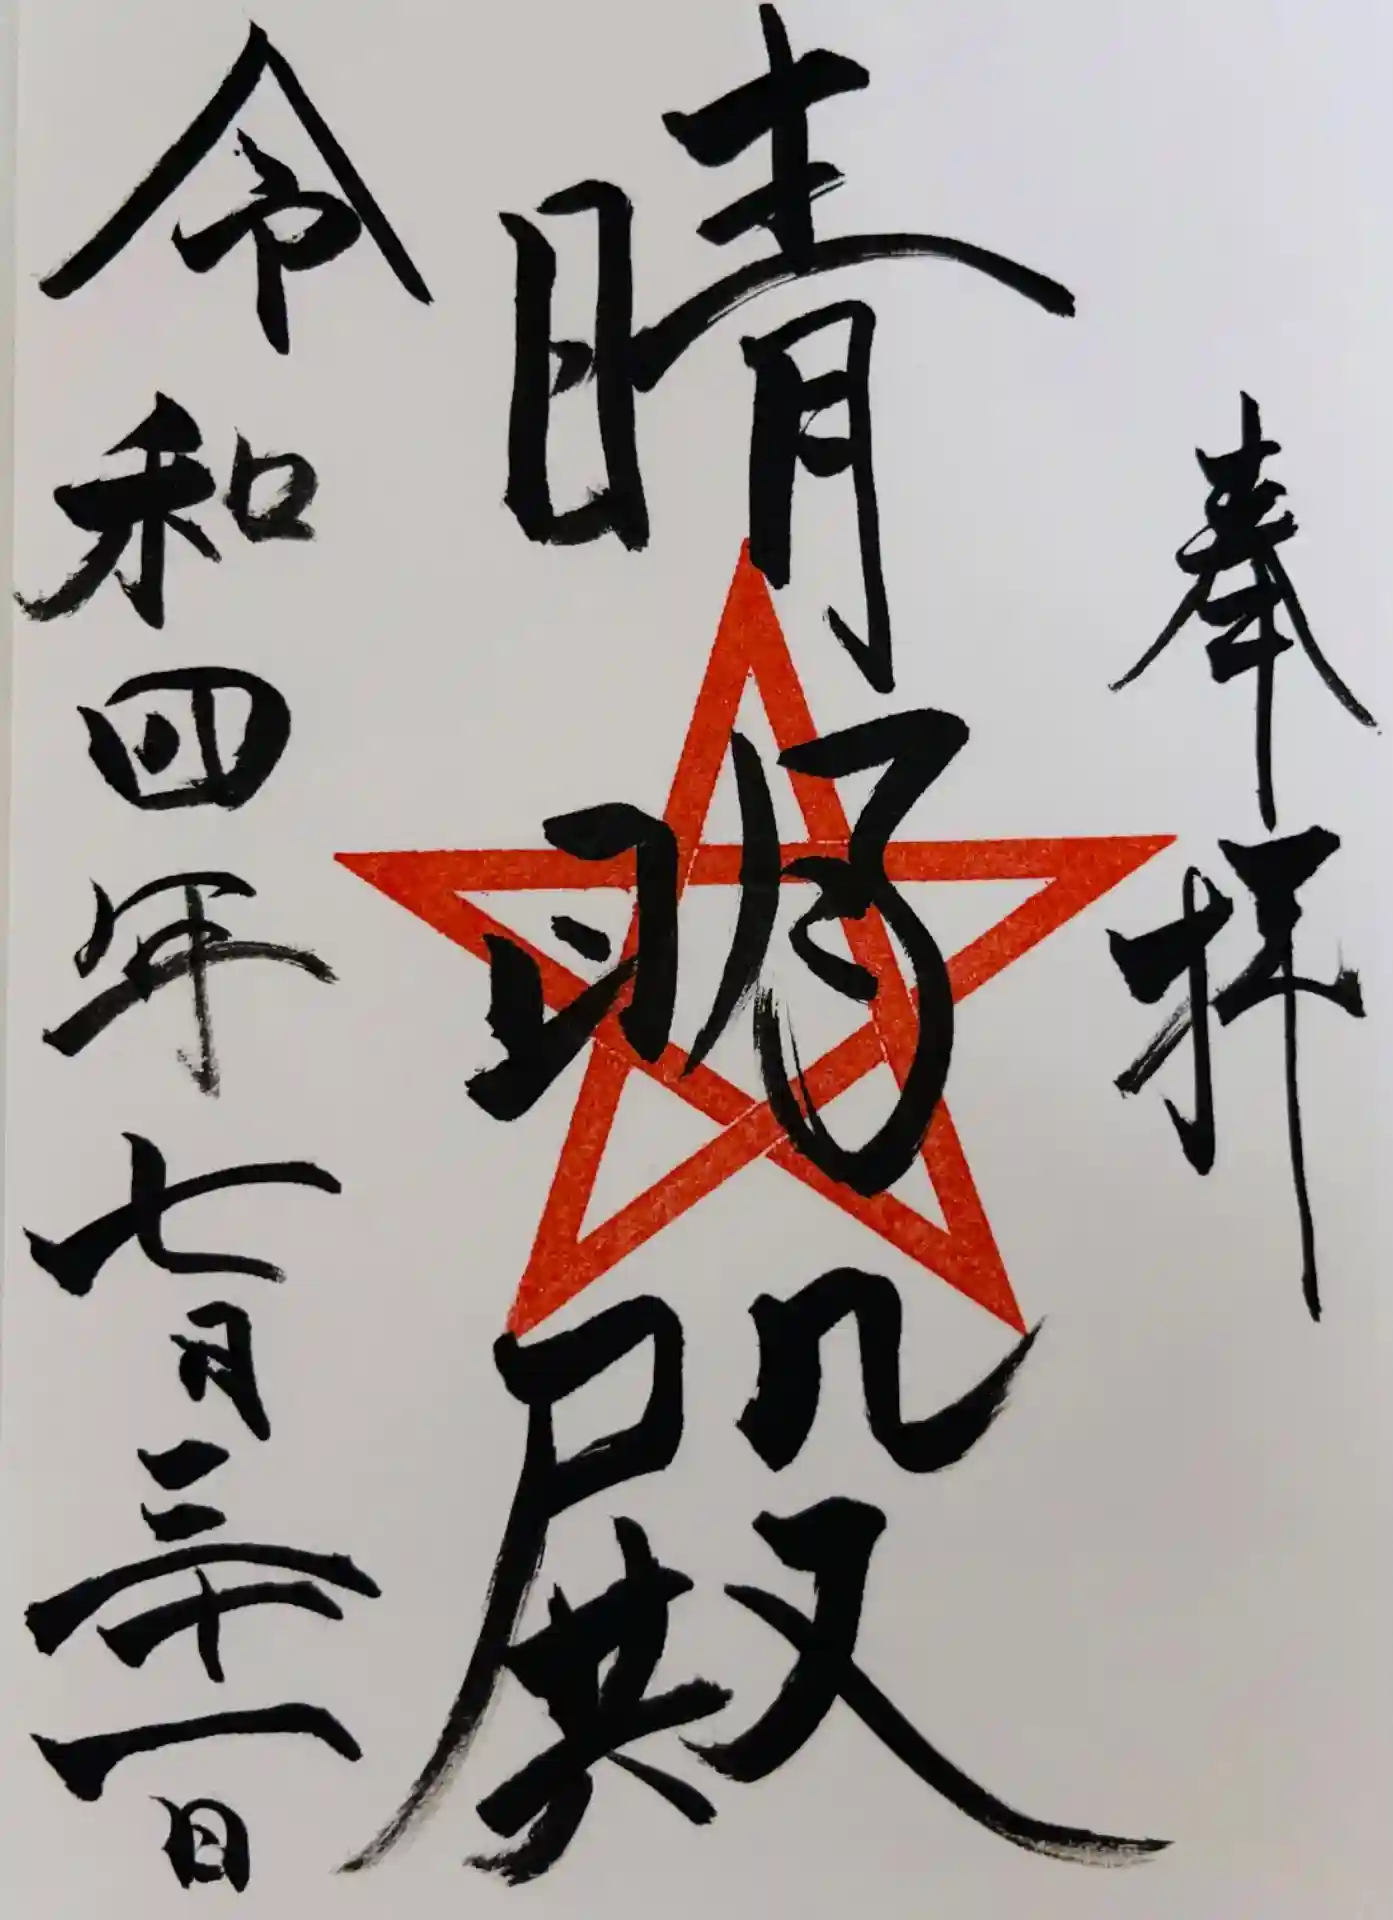 奉拝
晴明殿
令和四年七月三十一日